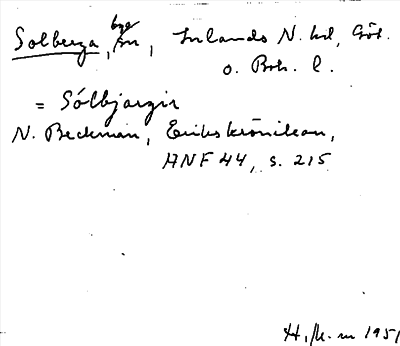 Solberga, bya, Inlands N. hd, Göt.
o. Boh. l.
= Sólbjargir
N. Beckman, Erikskrönikan,
ANF 44, s. 215
1951